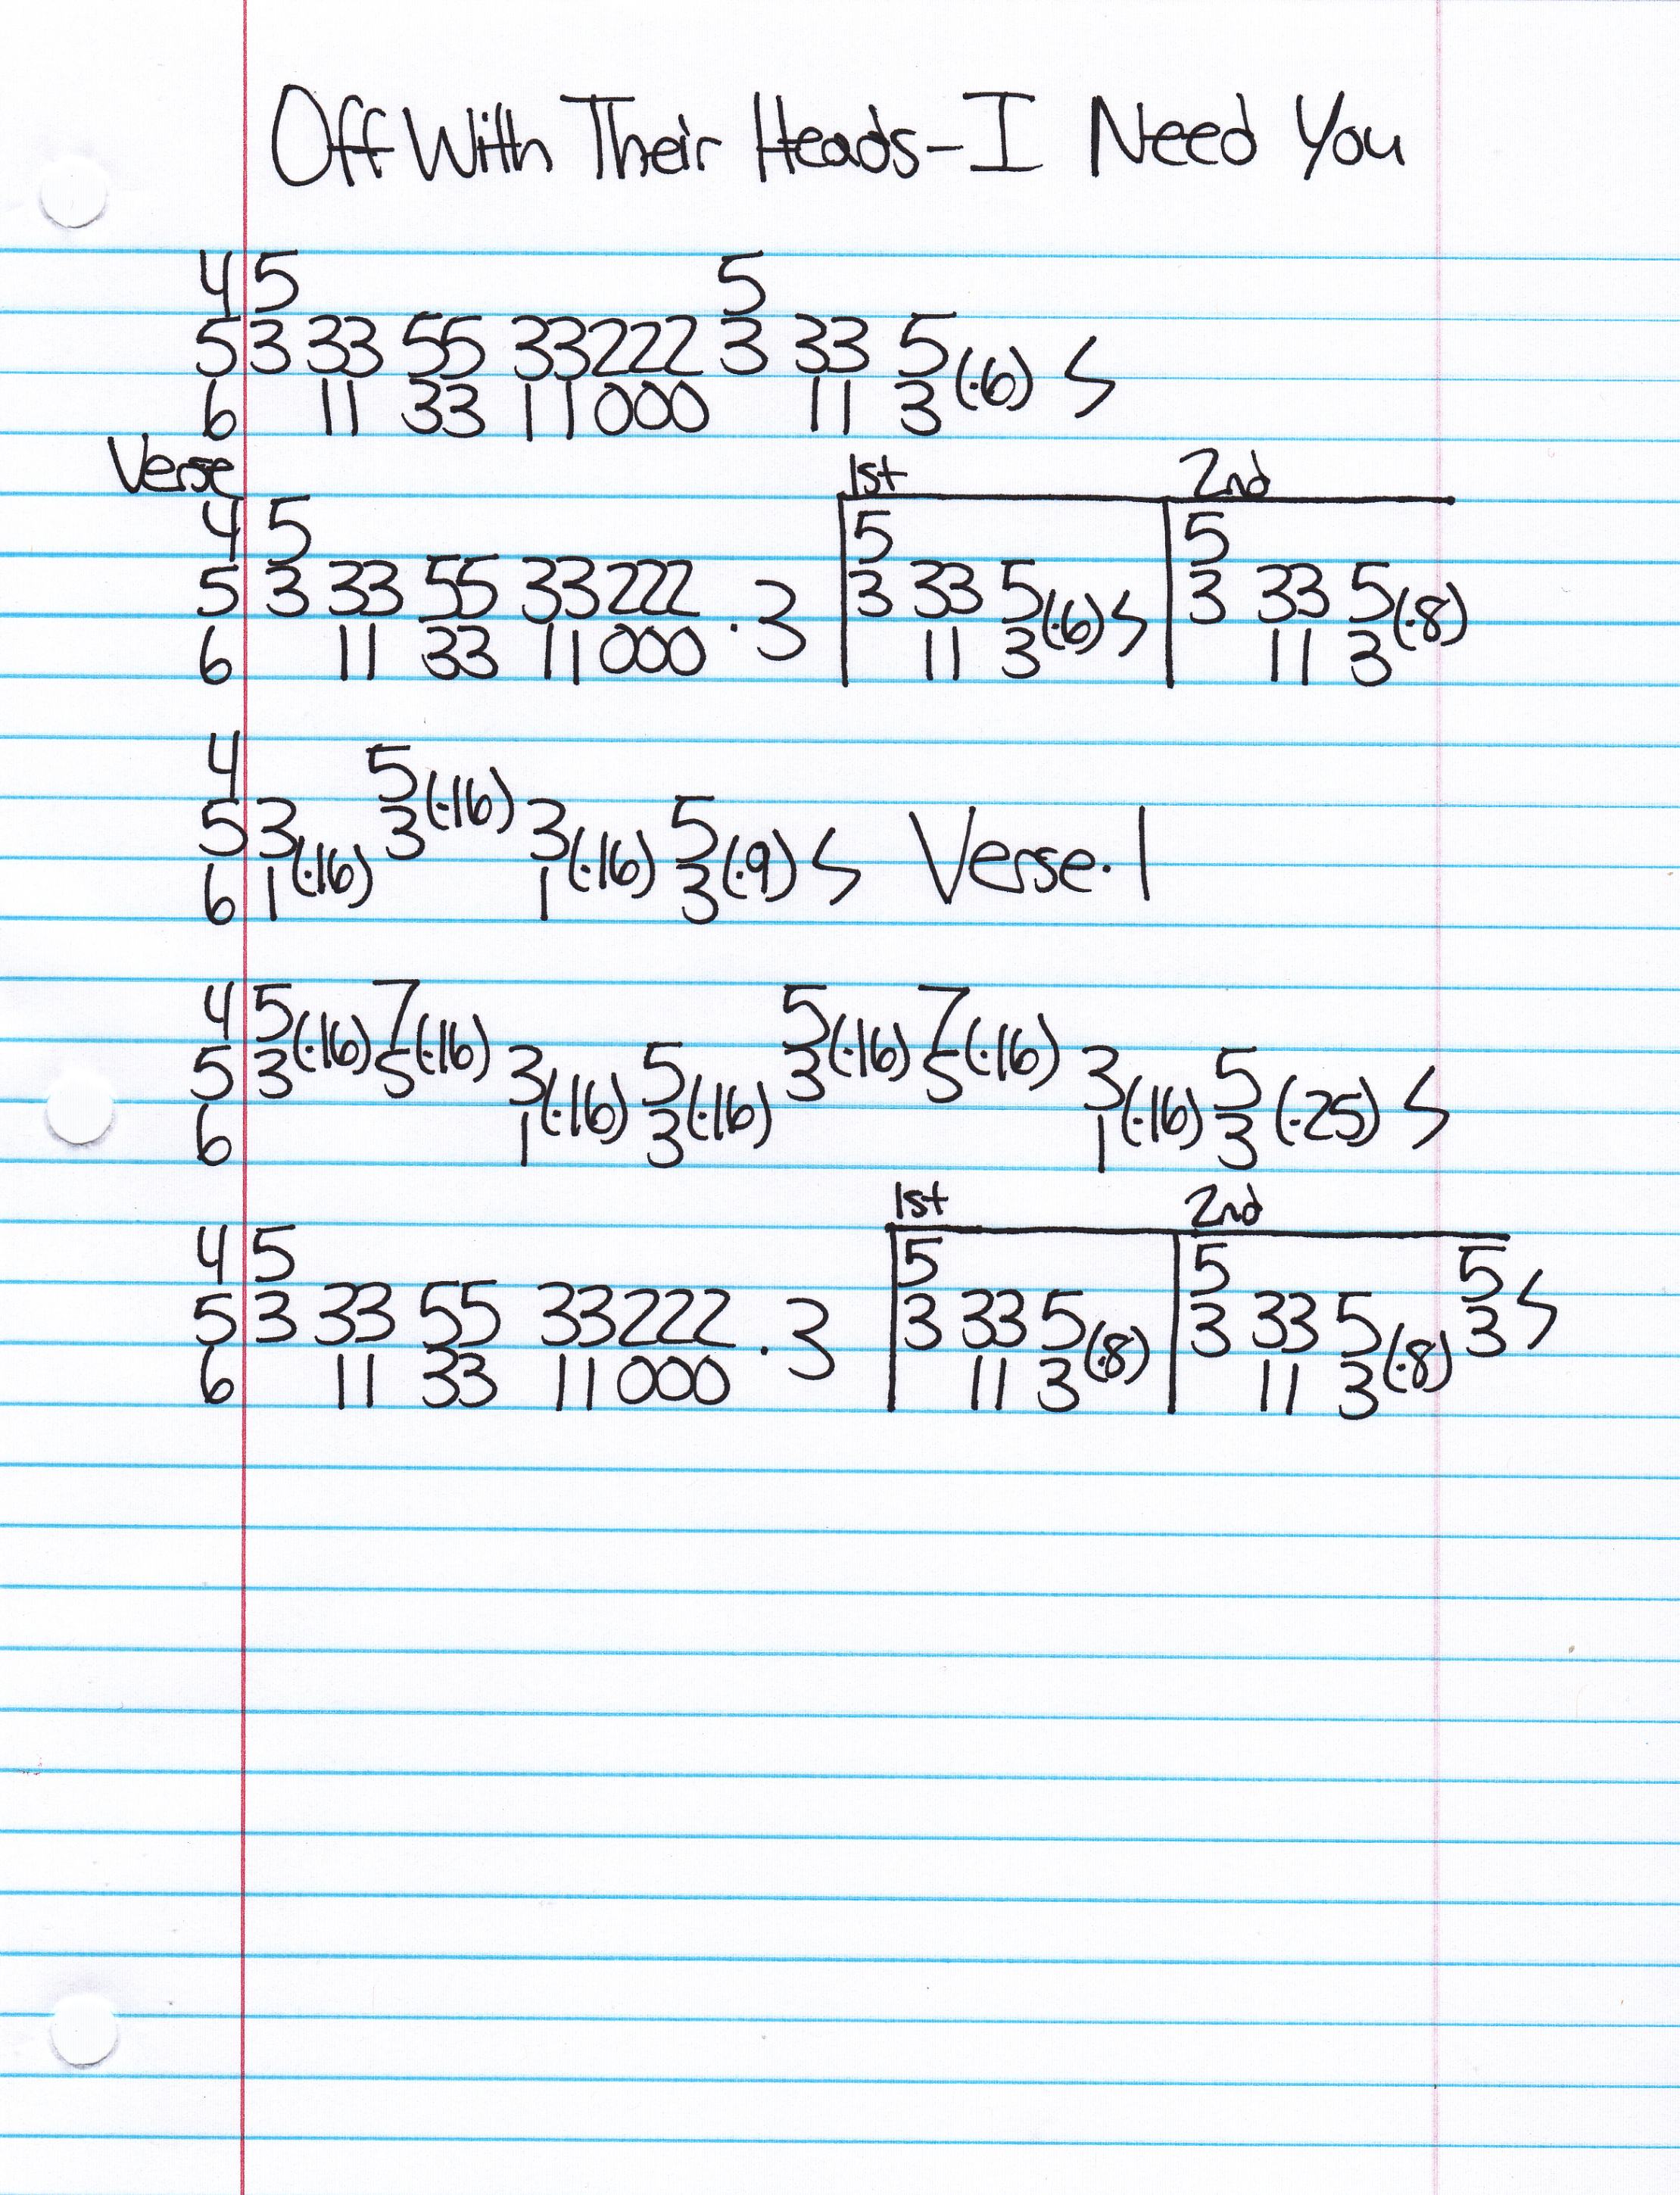 Off With Their Heads - I Need You
4 5 5
5 3 33 55 33 222 3 33 5 (·6) S
6 11 33 11 000 11 3
Verse 1st 2nd
4 5 5 5
5 3 33 55 33 222 ·3 3 33 5 (·6) S 3 33 5 (·8)
6 11 33 11 000 11 3 11 3
4 5 (·16)
5 3 (·16) 3 3 (·16) 5 (·9) S Verse·1
6 1 1 3
4 5 (·16) 7 (·16) 5 (·16) 7 (·16)
5 3 5 3 (·16) 5 (·16) 3 5 3 (·16) 5 (·25) S
6 1 3 1 3
1st 2nd
4 5 5 5 5
5 3 33 55 33 222 ·3 3 33 5 (·8) 3 33 5 (·8) 3 S
6 11 33 11 000 11 3 11 3